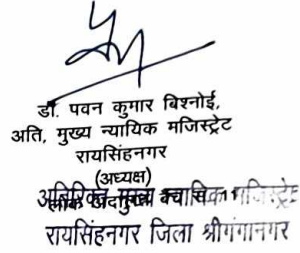 डॉ. पवन कुमार बिश्नोई,
अति, मुख्य न्यायिक मजिस्ट्रेट
रायसिंहनगर
(अध्यक्ष)
अतिरिक्त मुख्य न्यायिक मजिस्ट्रेट
लोक अदालत
रायसिंहनगर जिला श्रीगंगानगर